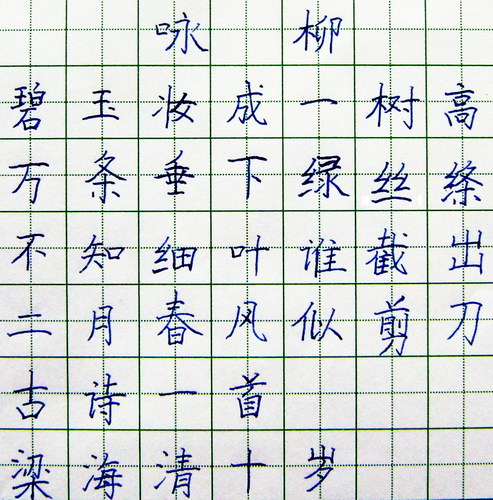 咏柳
碧玉妆成一树高
万条垂下绿丝绦
不知细叶谁截出
二月春风似剪刀
古诗一首
梁海清十岁